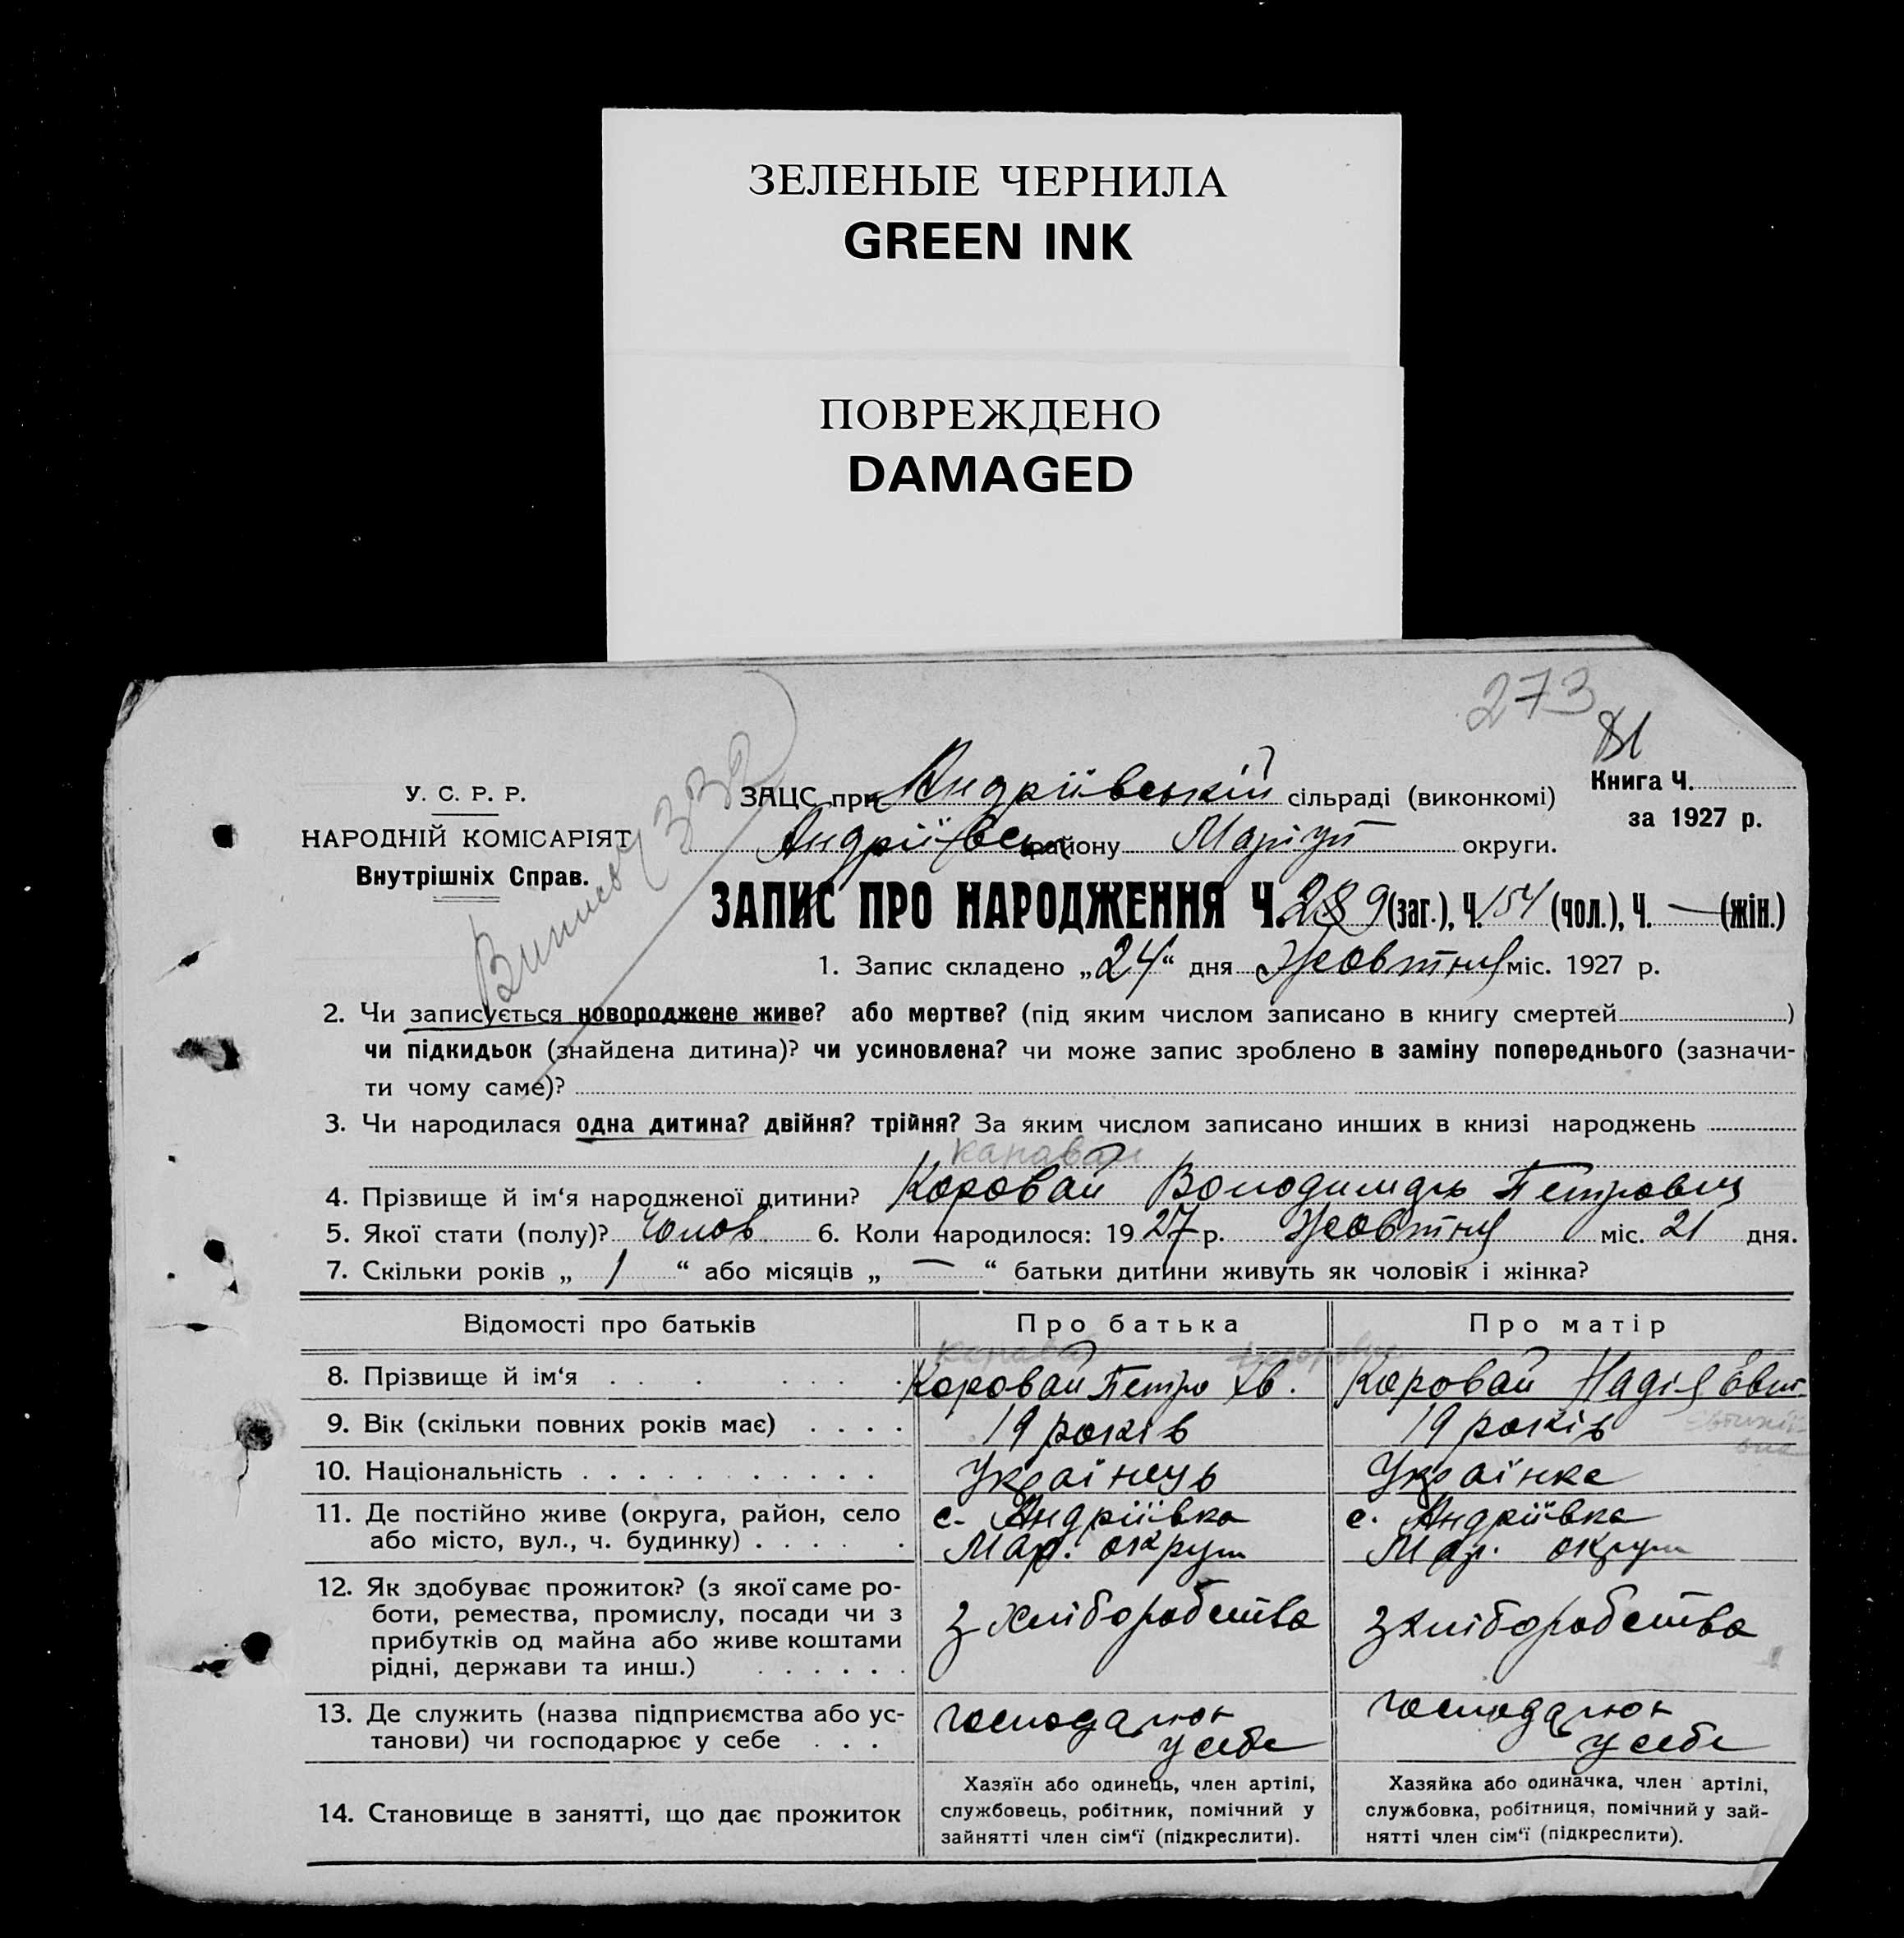 ЗЕЛЕНЫЕ ЧЕРНИЛА
GREEN INK
ПОВРЕЖДЕНО
DAMAGED
273
81
У. С. Р. Р.
НАРОДНІЙ КОМІСАРІЯТ
Внутрішніх Справ.
ЗАЦС при Андріївській сільраді (виконкомі)
Андріївськ району Маріуп округи.
Книга Ч.
за 1927 р.
ЗАПИС ПРО НАРОДЖЕННЯ Ч. 289 (заг.), Ч. 154 (чол.), Ч. — (жін.)
1. Запис складено „24“ дня Жовтня міс. 1927 р.
2. Чи записується новороджене живе? або мертве? (під яким числом записано в книгу смертей)
чи підкидьок (знайдена дитина)? чи усиновлена? чи може запис зроблено в заміну попереднього (зазначи-
ти чому саме)?
3. Чи народилася одна дитина? двійня? трійня? За яким числом записано инших в книзі народжень
Каравай
4. Прізвище й ім‘я народженої дитини? Коровай Володимдь Петрович
5. Якої стати (полу)? Чолов 6. Коли народилося: 1927 р. Жовтня міс. 21 дня.
7. Скільки років „ 1 “ або місяців „ — “ батьки дитини живуть як чоловік і жінка?
Відомості про батьків Про батька Про матір
Каравай
8. Прізвище й ім‘я Коровай Петро Хв. Коровай Надія Євт.
9. Вік (скільки повних років має) 19 років 19 років
Євтихії-
вна
10. Національність Українець Українка
11. Де постійно живе (округа, район, село с. Андріївка с. Андріївка
або місто, вул., ч. будинку) Мар. округи Мар. округи
12. Як здобуває прожиток? (з якої саме ро-
боти, ремества, промислу, посади чи з з хліборобства з хліборобства
прибутків од майна або живе коштами
рідні, держави та инш.)
13. Де служить (назва підприємства або ус- господарює господарює
танови) чи господарює у себе у себе у себе
14. Становище в занятті, що дає прожиток
Хазяїн або одинець, член артілі,
службовець, робітник, помічний у
зайнятті член сім‘ї (підкреслити).
Хазяйка або одиначка, член артілі,
службовка, робітниця, помічний у зай-
нятті член сім‘ї (підкреслити).